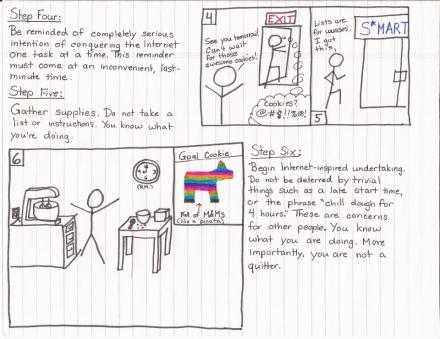 Step Four:
Be reminded of completely serious
intention of conquering the Internet
one task at a time. This reminder
must come at an inconvenient, last-
minute time.
Step Five:
Gather supplies. Do not take a
list or instructions. You know what
you're doing.
4
See you tomorrow!
Can't wait
for those
awesome cookies!
EXIT
Cookies?
@#$!!%@!
Lists are
for wusses.
I got
this.
S*MART
5
6
(P.M.)
Goal Cookie
Full of M&Ms
(like a piñata)
Step Six:
Begin Internet-inspired undertaking.
Do not be deterred by trivial
things such as a late start time,
or the phrase "chill dough for
4 hours." These are concerns
for other people. You know
what you are doing. More
importantly, you are not a
quitter.